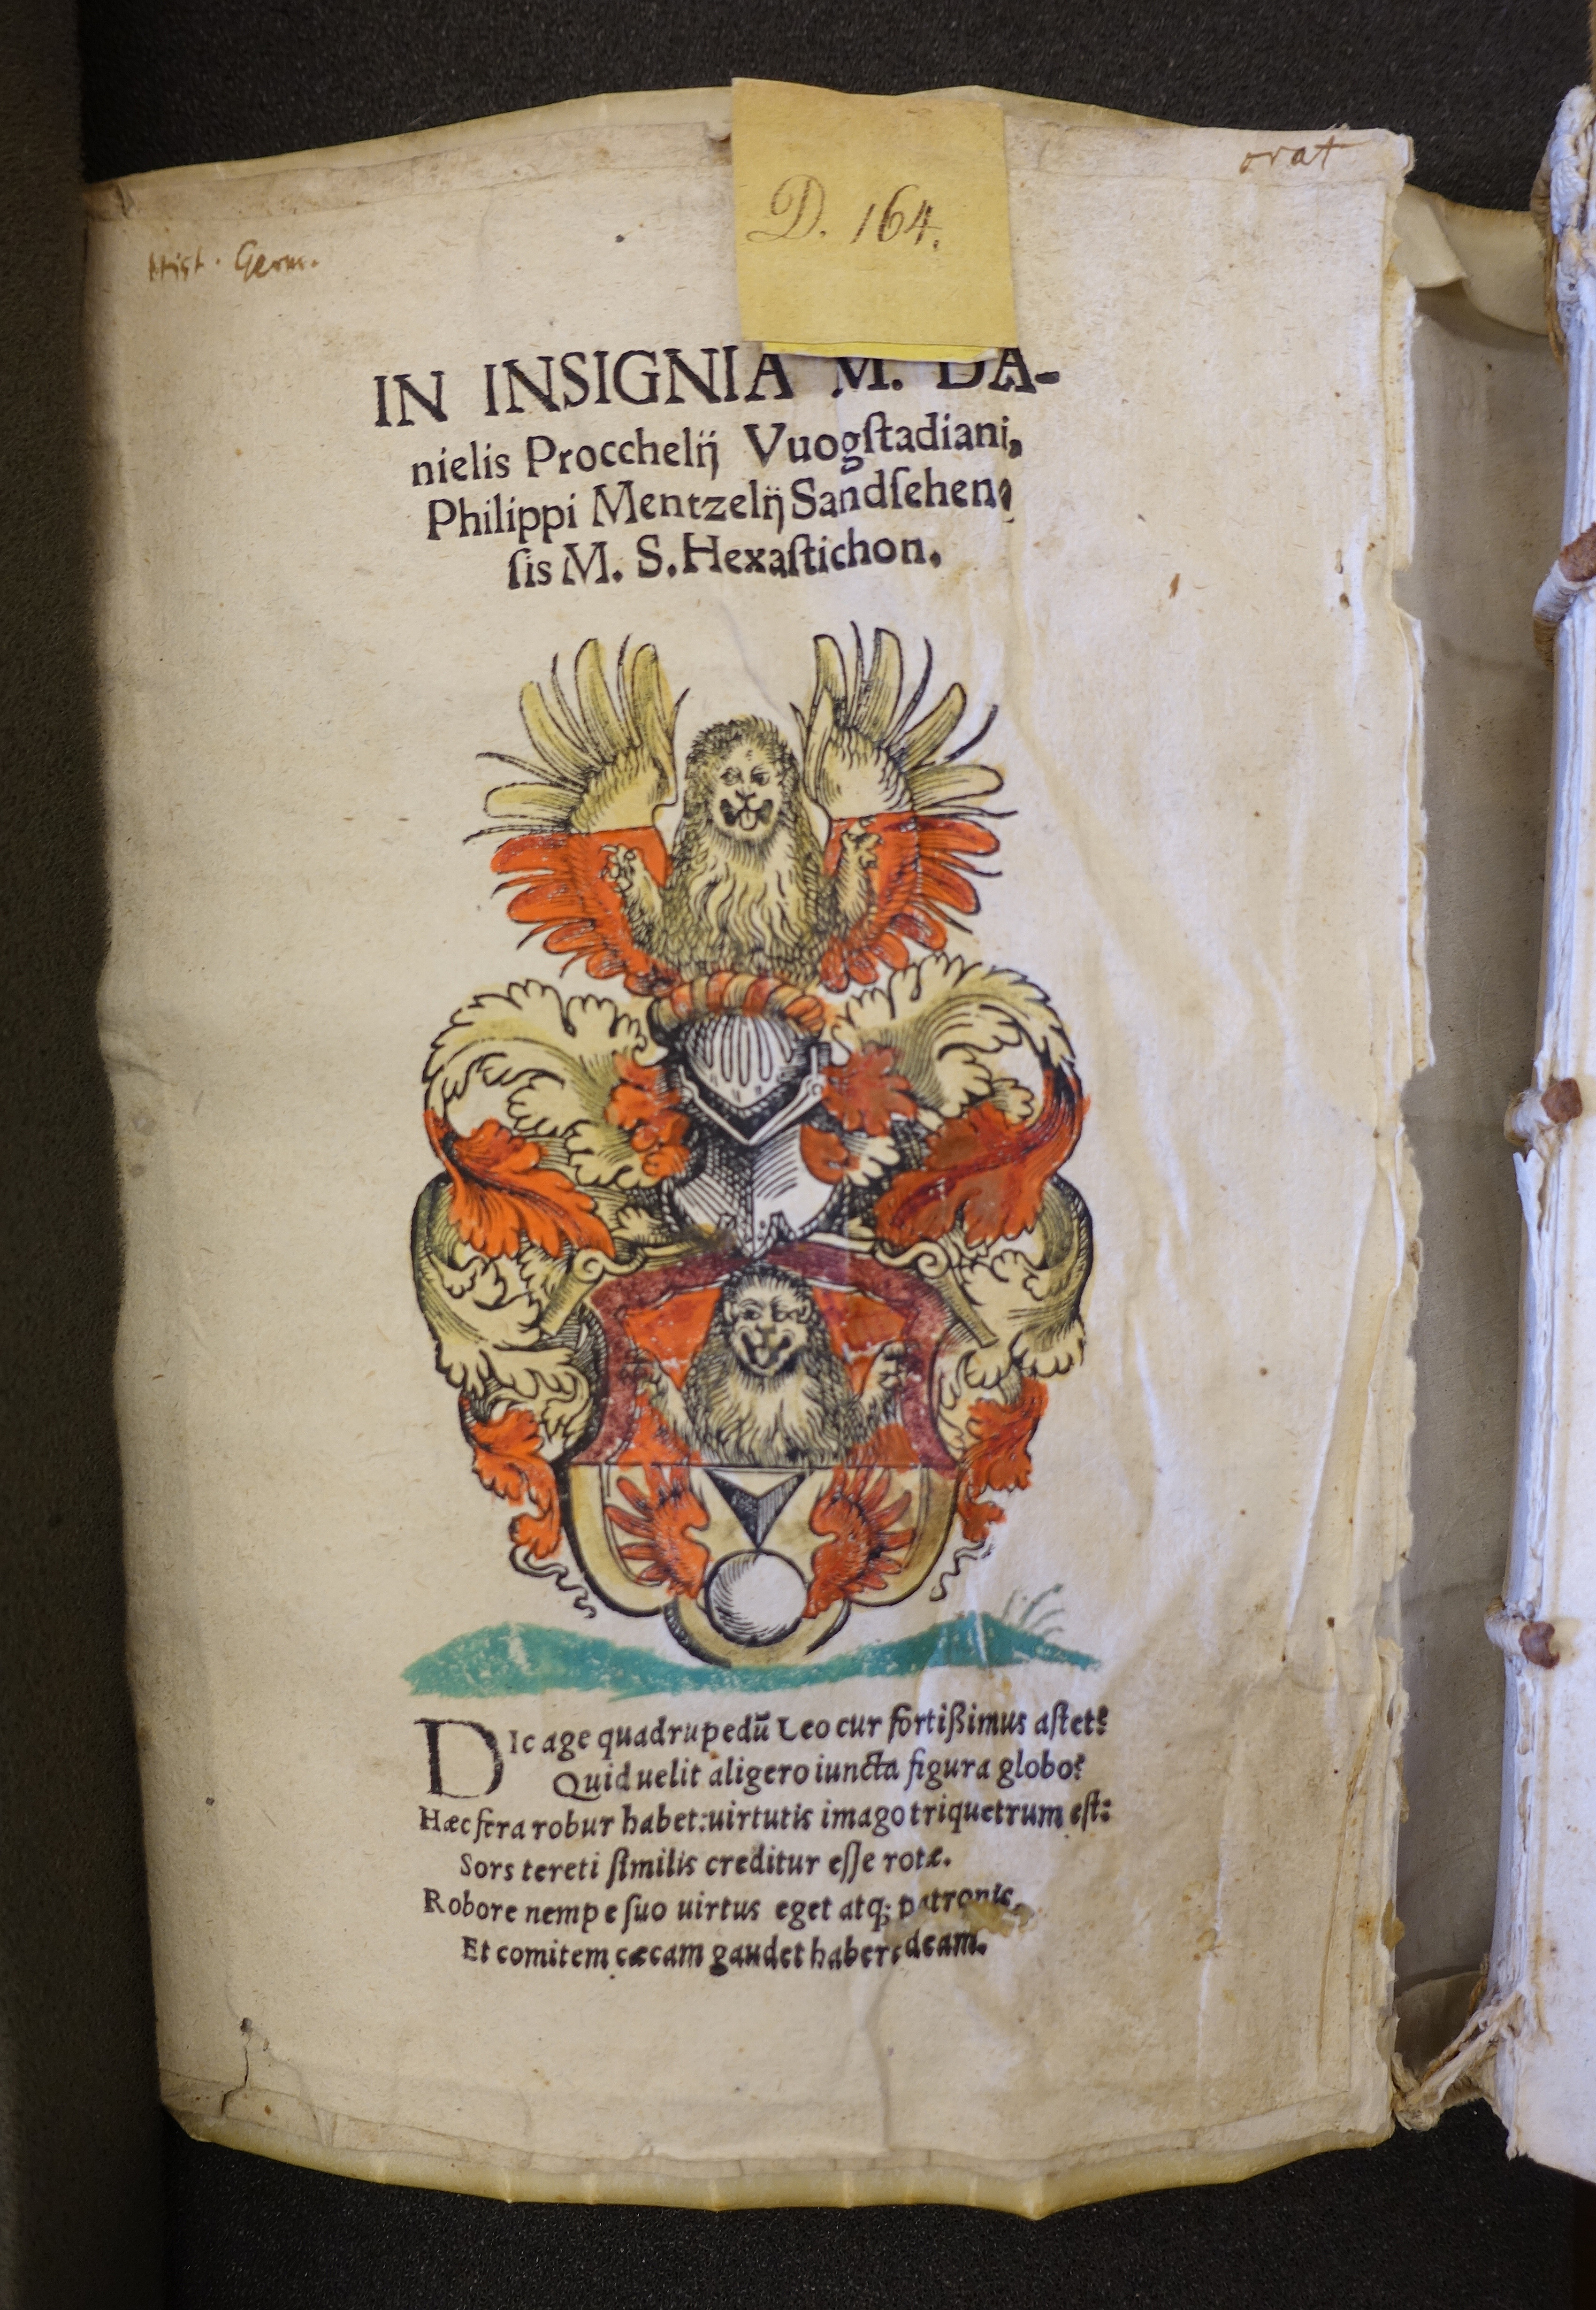 orat
D. 164.
Hist. Germ.
IN INSIGNIA M. DA-
nielis Proccheliĳ Vuogſtadiani,
Philippi Mentzelĳ Sandſehen,
ſis M. S. Hexaſtichon.
DIc age quadrupedū Leo cur fortißimus aſtet?
Quid uelit aligero iuncta figura globo?
Hæc fera robur habet: uirtutis imago triquetrum eſt:
Sors tereti ſimilis creditur eſſe rotæ.
Robore nempe ſuo uirtus eget atq; patronis,
Et comitem cæcam gaudet habere deam.